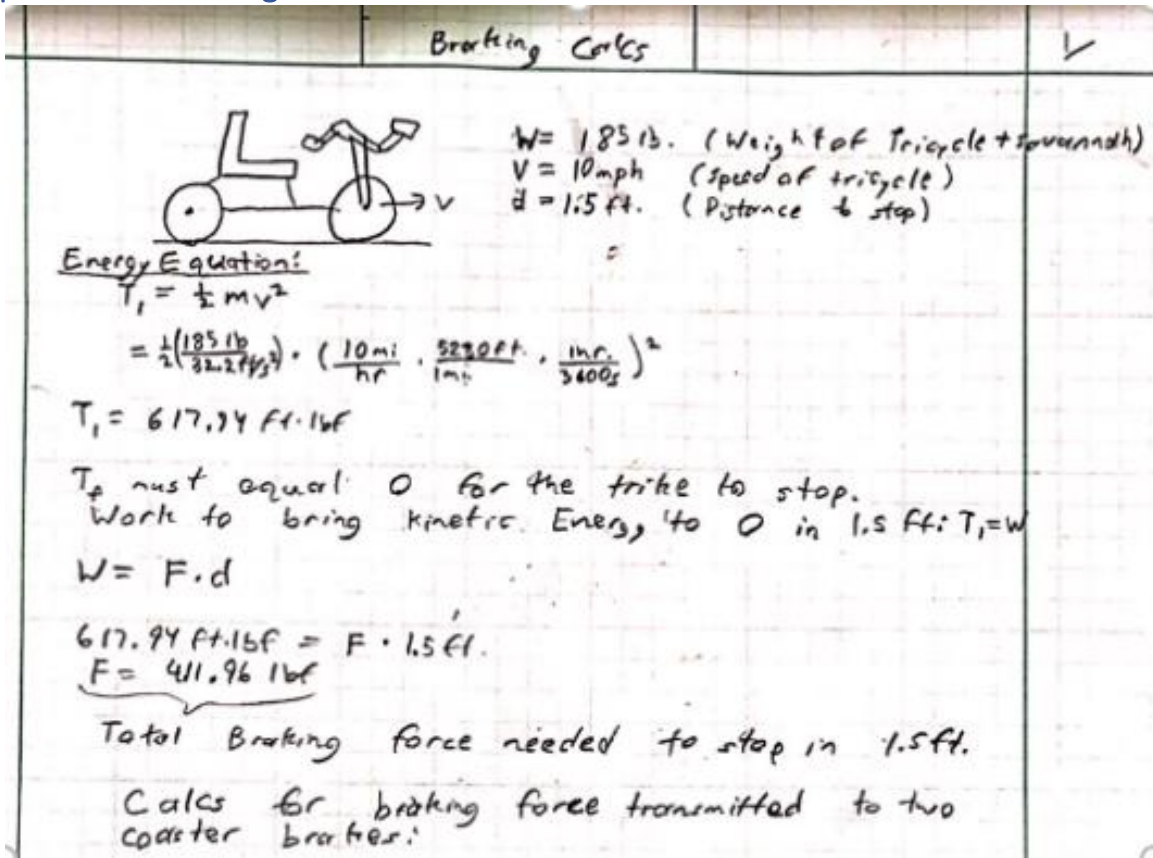 Braking Calcs
W = 185 lb. (Weight of Tricycle + Savannah)
V = 10mph (speed of tricycle)
d = 1.5 ft. (Distance to stop)
→ V
Energy Equation:
T₁ = ½ mv²
= ½(185 lb / 32.2 ft/s²) · (10mi / hr · 5280ft / 1mi · 1hr. / 3600s)²
T₁ = 617.94 ft·lbf
T_f must equal 0 for the trike to stop.
Work to bring kinetic Energy to 0 in 1.5 ft: T₁=W
W = F·d
617.94 ft·lbf = F · 1.5 ft.
F = 411.96 lbf
Total Braking force needed to stop in 1.5ft.
Calcs for braking force transmitted to two
coaster brakes: